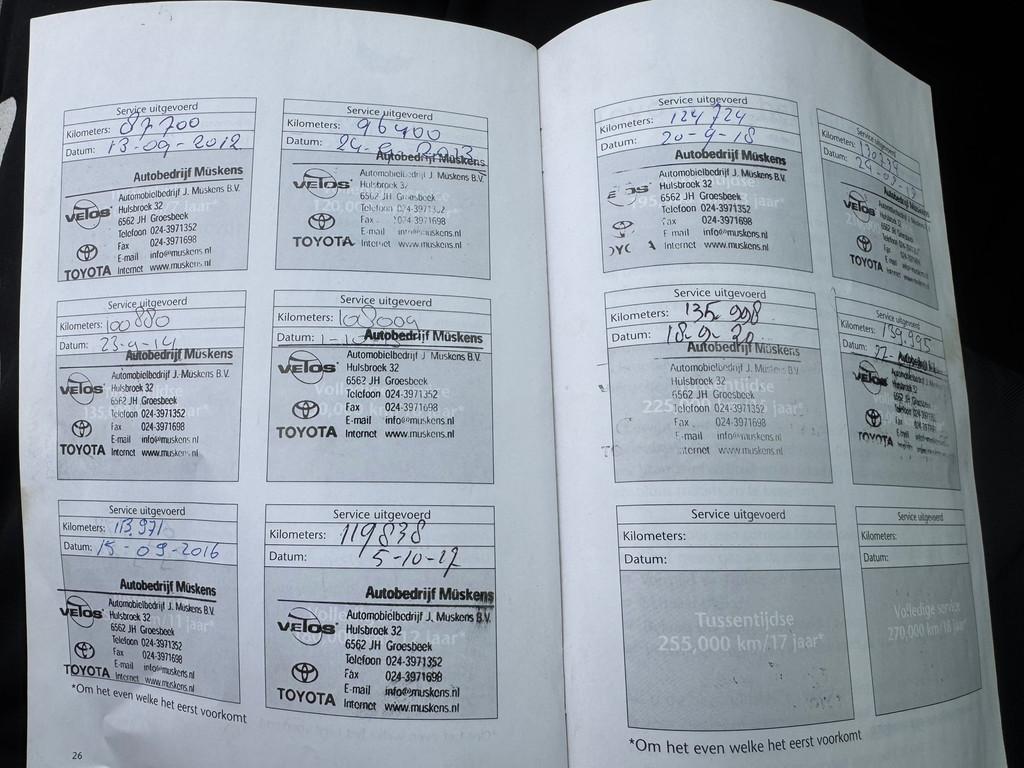 Service uitgevoerd
Kilometers: 87700
Datum: 13-09-2012
Autobedrijf Müskens
Automobielbedrijf J. Müskens B.V.
VELOS Hulsbroek 32
6562 JH Groesbeek
Telefoon 024-3971352
Fax 024-3971698
E-mail info@muskens.nl
TOYOTA Internet www.muskens.nl
Service uitgevoerd
Kilometers: 96400
Datum: 24-
Autobedrijf Müskens
Automobielbedrijf J. Müskens B.V.
VELOS Hulsbroek 32
6562 JH Groesbeek
Telefoon 024-3971352
Fax 024-3971698
E-mail info@muskens.nl
TOYOTA Internet www.muskens.nl
Service uitgevoerd
Kilometers: 100880
Datum: 23-9-14
Autobedrijf Müskens
Automobielbedrijf J. Müskens B.V.
VELOS Hulsbroek 32
6562 JH Groesbeek
Telefoon 024-3971352
Fax 024-3971698
E-mail info@muskens.nl
TOYOTA Internet www.muskens.nl
Service uitgevoerd
Kilometers: 108009
Datum: 1-10-
Autobedrijf Müskens
Automobielbedrijf J. Müskens B.V.
VELOS Hulsbroek 32
6562 JH Groesbeek
Telefoon 024-3971352
Fax 024-3971698
E-mail info@muskens.nl
TOYOTA Internet www.muskens.nl
Service uitgevoerd
Kilometers: 113.971
Datum: 15-09-2016
Autobedrijf Müskens
Automobielbedrijf J. Müskens B.V.
VELOS Hulsbroek 32
6562 JH Groesbeek
Telefoon 024-3971352
Fax 024-3971698
E-mail info@muskens.nl
TOYOTA Internet www.muskens.nl
Service uitgevoerd
Kilometers: 119838
Datum: 5-10-17
Autobedrijf Müskens
Automobielbedrijf J. Müskens B.V.
VELOS Hulsbroek 32
6562 JH Groesbeek
Telefoon 024-3971352
Fax 024-3971698
E-mail info@muskens.nl
TOYOTA Internet www.muskens.nl
*Om het even welke het eerst voorkomt
26
Service uitgevoerd
Kilometers: 124724
Datum: 20-9-18
Autobedrijf Müskens
Automobielbedrijf J. Müskens B.V.
Hulsbroek 32
6562 JH Groesbeek
Telefoon 024-3971352
Fax 024-3971698
E-mail info@muskens.nl
Internet www.muskens.nl
Service uitgevoerd
Kilometers: 130239
Datum:
Autobedrijf Müskens
VELOS
TOYOTA
Service uitgevoerd
Kilometers: 135.998
Datum: 18-9-20
Autobedrijf Müskens
Automobielbedrijf J. Müskens B.V.
Hulsbroek 32
6562 JH Groesbeek
Telefoon 024-3971352
Fax 024-3971698
E-mail info@muskens.nl
Internet www.muskens.nl
Service uitgevoerd
Kilometers: 139.995
Datum: 22-
VELOS
TOYOTA
Service uitgevoerd
Kilometers:
Datum:
Tussentijdse
255,000 km/17 jaar*
Service uitgevoerd
Kilometers:
Datum:
Volledige service
270,000 km/18 jaar*
*Om het even welke het eerst voorkomt